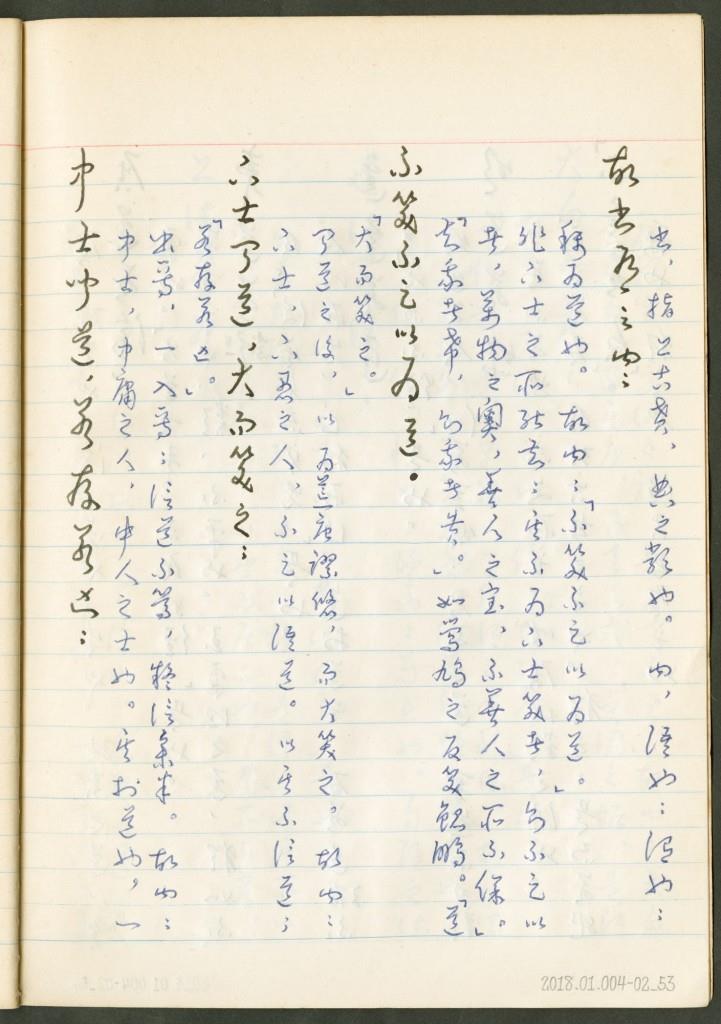 中士聞道，若存若亡：
中士，中庸之人，中人之士也。其於道也，一
出焉，一入焉；信道不篤，疑信參半。故曰：
「若存若亡。」
下士聞道，大而笑之：
下士，下愚之人，不足以語道。以其不信道；
聞道之後，以為荒唐謬悠，而大笑之。故曰：
「大而笑之。」
不笑不足以為道。
「知我者希，則我者貴。」如鷽鳩之反笑鯤鵬。「道
者，萬物之奧，善人之寶，不善人之所不保。」
非下士之所能知；其不為下士笑者，則不足以
稱為道也。故曰：「不笑不足以為道。」
故書有之曰：
書，指上古，典之類也。曰，語也：謂也：
2018.01.004-02_53